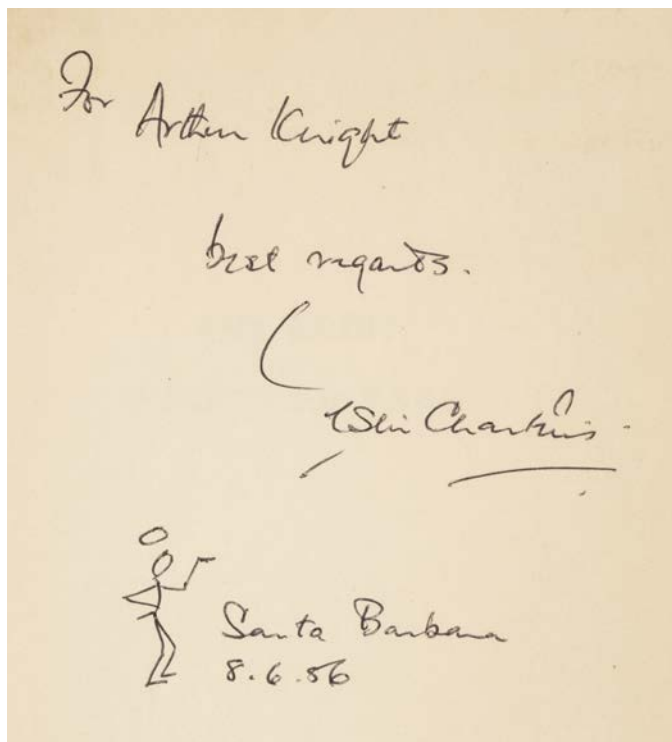 For Arthur Knight
best regards.
Leslie Charteris.
Santa Barbara
8.6.56